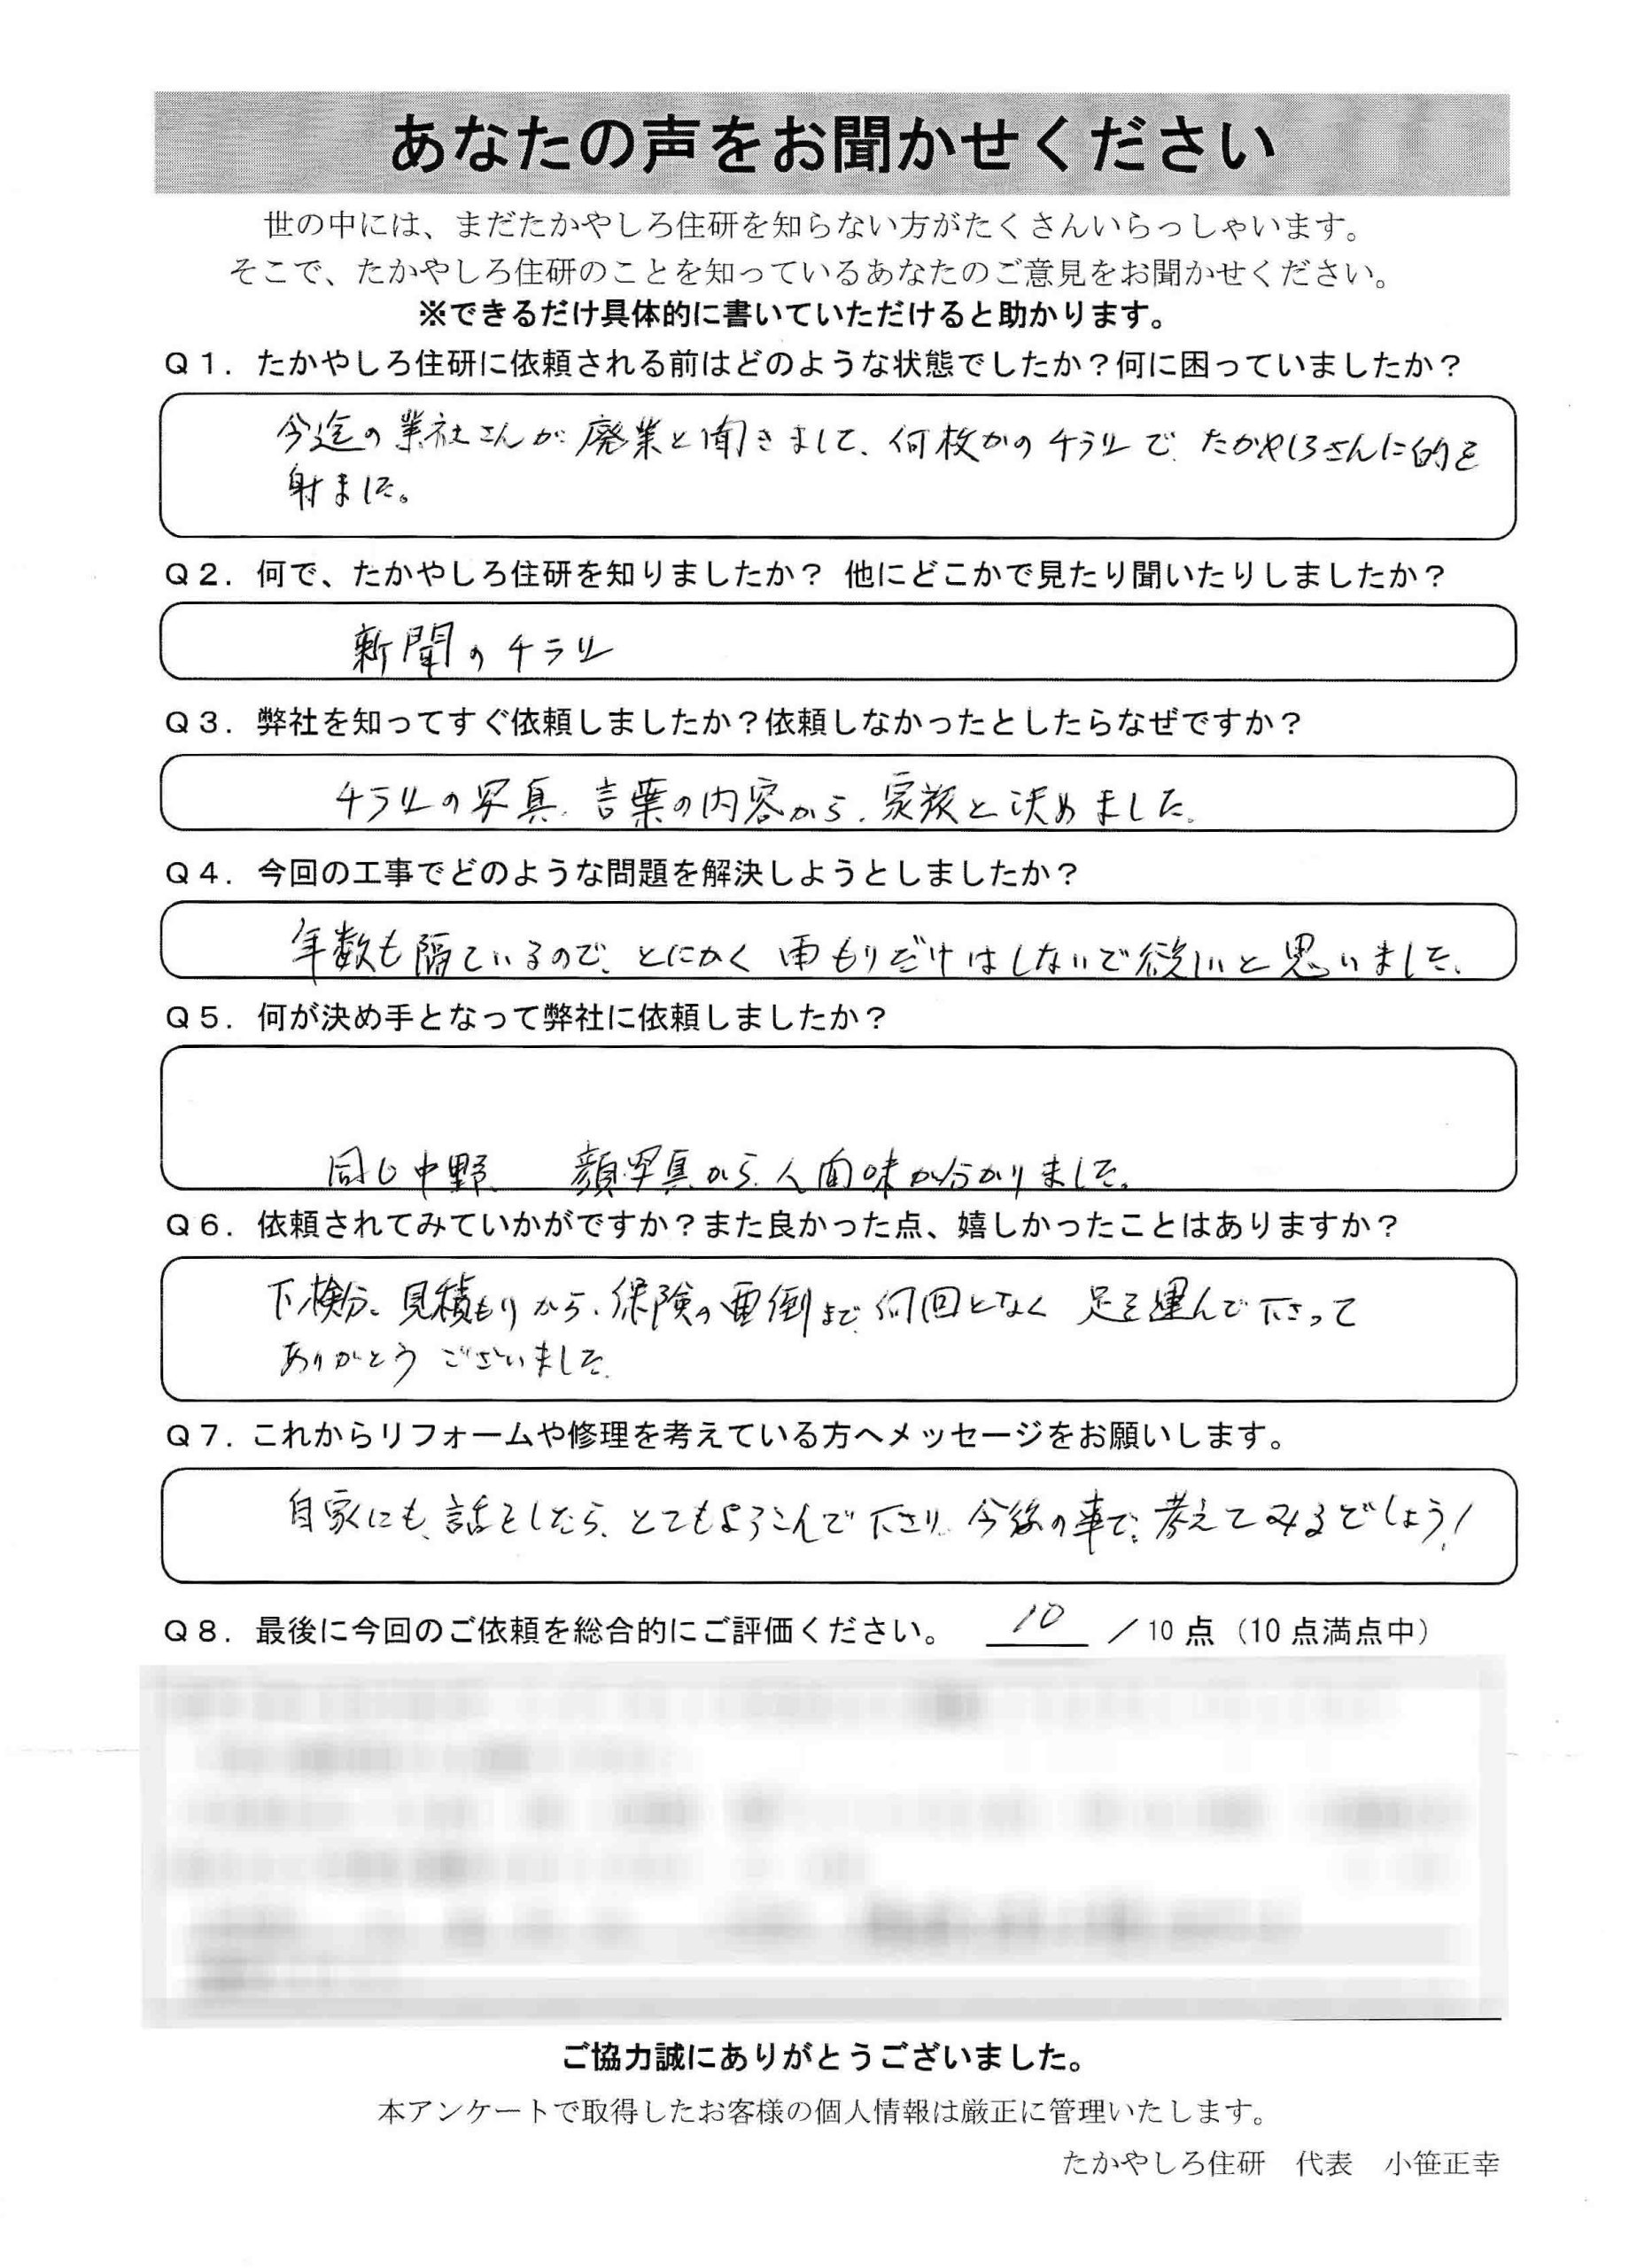 あなたの声をお聞かせください
世の中には、まだたかやしろ住研を知らない方がたくさんいらっしゃいます。
そこで、たかやしろ住研のことを知っているあなたのご意見をお聞かせください。
※できるだけ具体的に書いていただけると助かります。
Q1．たかやしろ住研に依頼される前はどのような状態でしたか？何に困っていましたか？
今迄の業社さんが廃業と聞きまして、何枚かのチラシで、たかやしろさんに的を
射ました。
Q2．何で、たかやしろ住研を知りましたか？ 他にどこかで見たり聞いたりしましたか？
新聞のチラシ
Q3．弊社を知ってすぐ依頼しましたか？依頼しなかったとしたらなぜですか？
チラシの写真、言葉の内容から、家族と決めました。
Q4．今回の工事でどのような問題を解決しようとしましたか？
年数も隔ているので、とにかく雨もりだけはしないで欲しいと思いました。
Q5．何が決め手となって弊社に依頼しましたか？
同じ中野、 顔写真から、人間味が分かりました。
Q6．依頼されてみていかがですか？また良かった点、嬉しかったことはありますか？
下検分、見積もりから、保険の面倒まで何回となく 足を運んで下さって
ありがとうございました。
Q7．これからリフォームや修理を考えている方へメッセージをお願いします。
自家にも、話をしたら、とてもよろこんで下さり、今後の事で、考えてみるでしょう！
Q8．最後に今回のご依頼を総合的にご評価ください。 10 ／10点（10点満点中）
ご協力誠にありがとうございました。
本アンケートで取得したお客様の個人情報は厳正に管理いたします。
たかやしろ住研 代表 小笹正幸